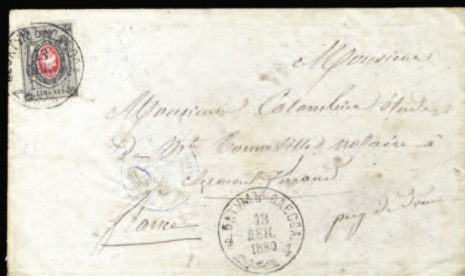 Monsieur
Monsieur Colombier Etude
De Me notaire à
Clermont Ferrand
puy de Dome
France
БАТУМЪ ОДЕССА
13
ДЕК.
1880